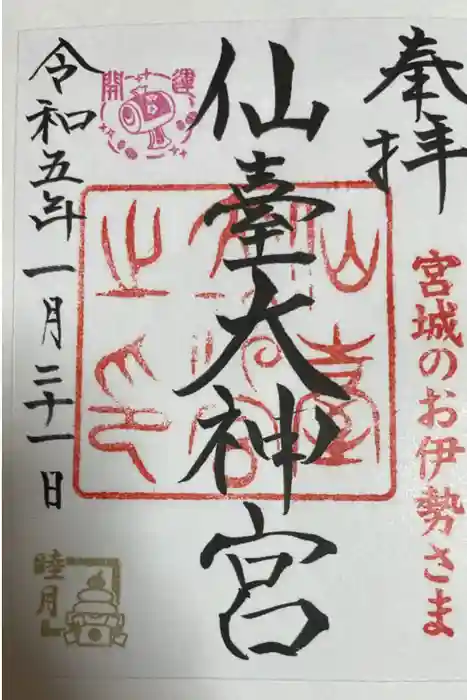 奉拝
宮城のお伊勢さま
仙臺大神宮
開運
令和五年一月二十一日
睦月